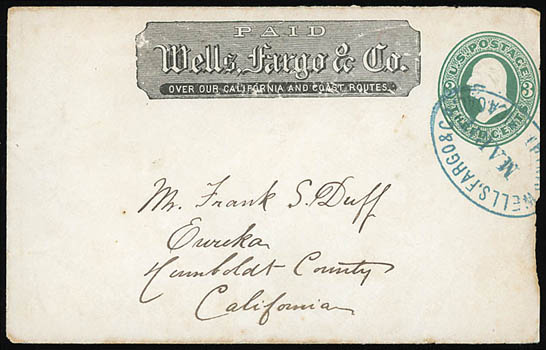 PAID
Wells, Fargo & Co.
OVER OUR CALIFORNIA AND COAST ROUTES.
U.S. POSTAGE
3
THREE CENTS
WELLS, FARGO & CO
MAR
Mr. Frank S. Duff
Eureka
Humboldt County
California